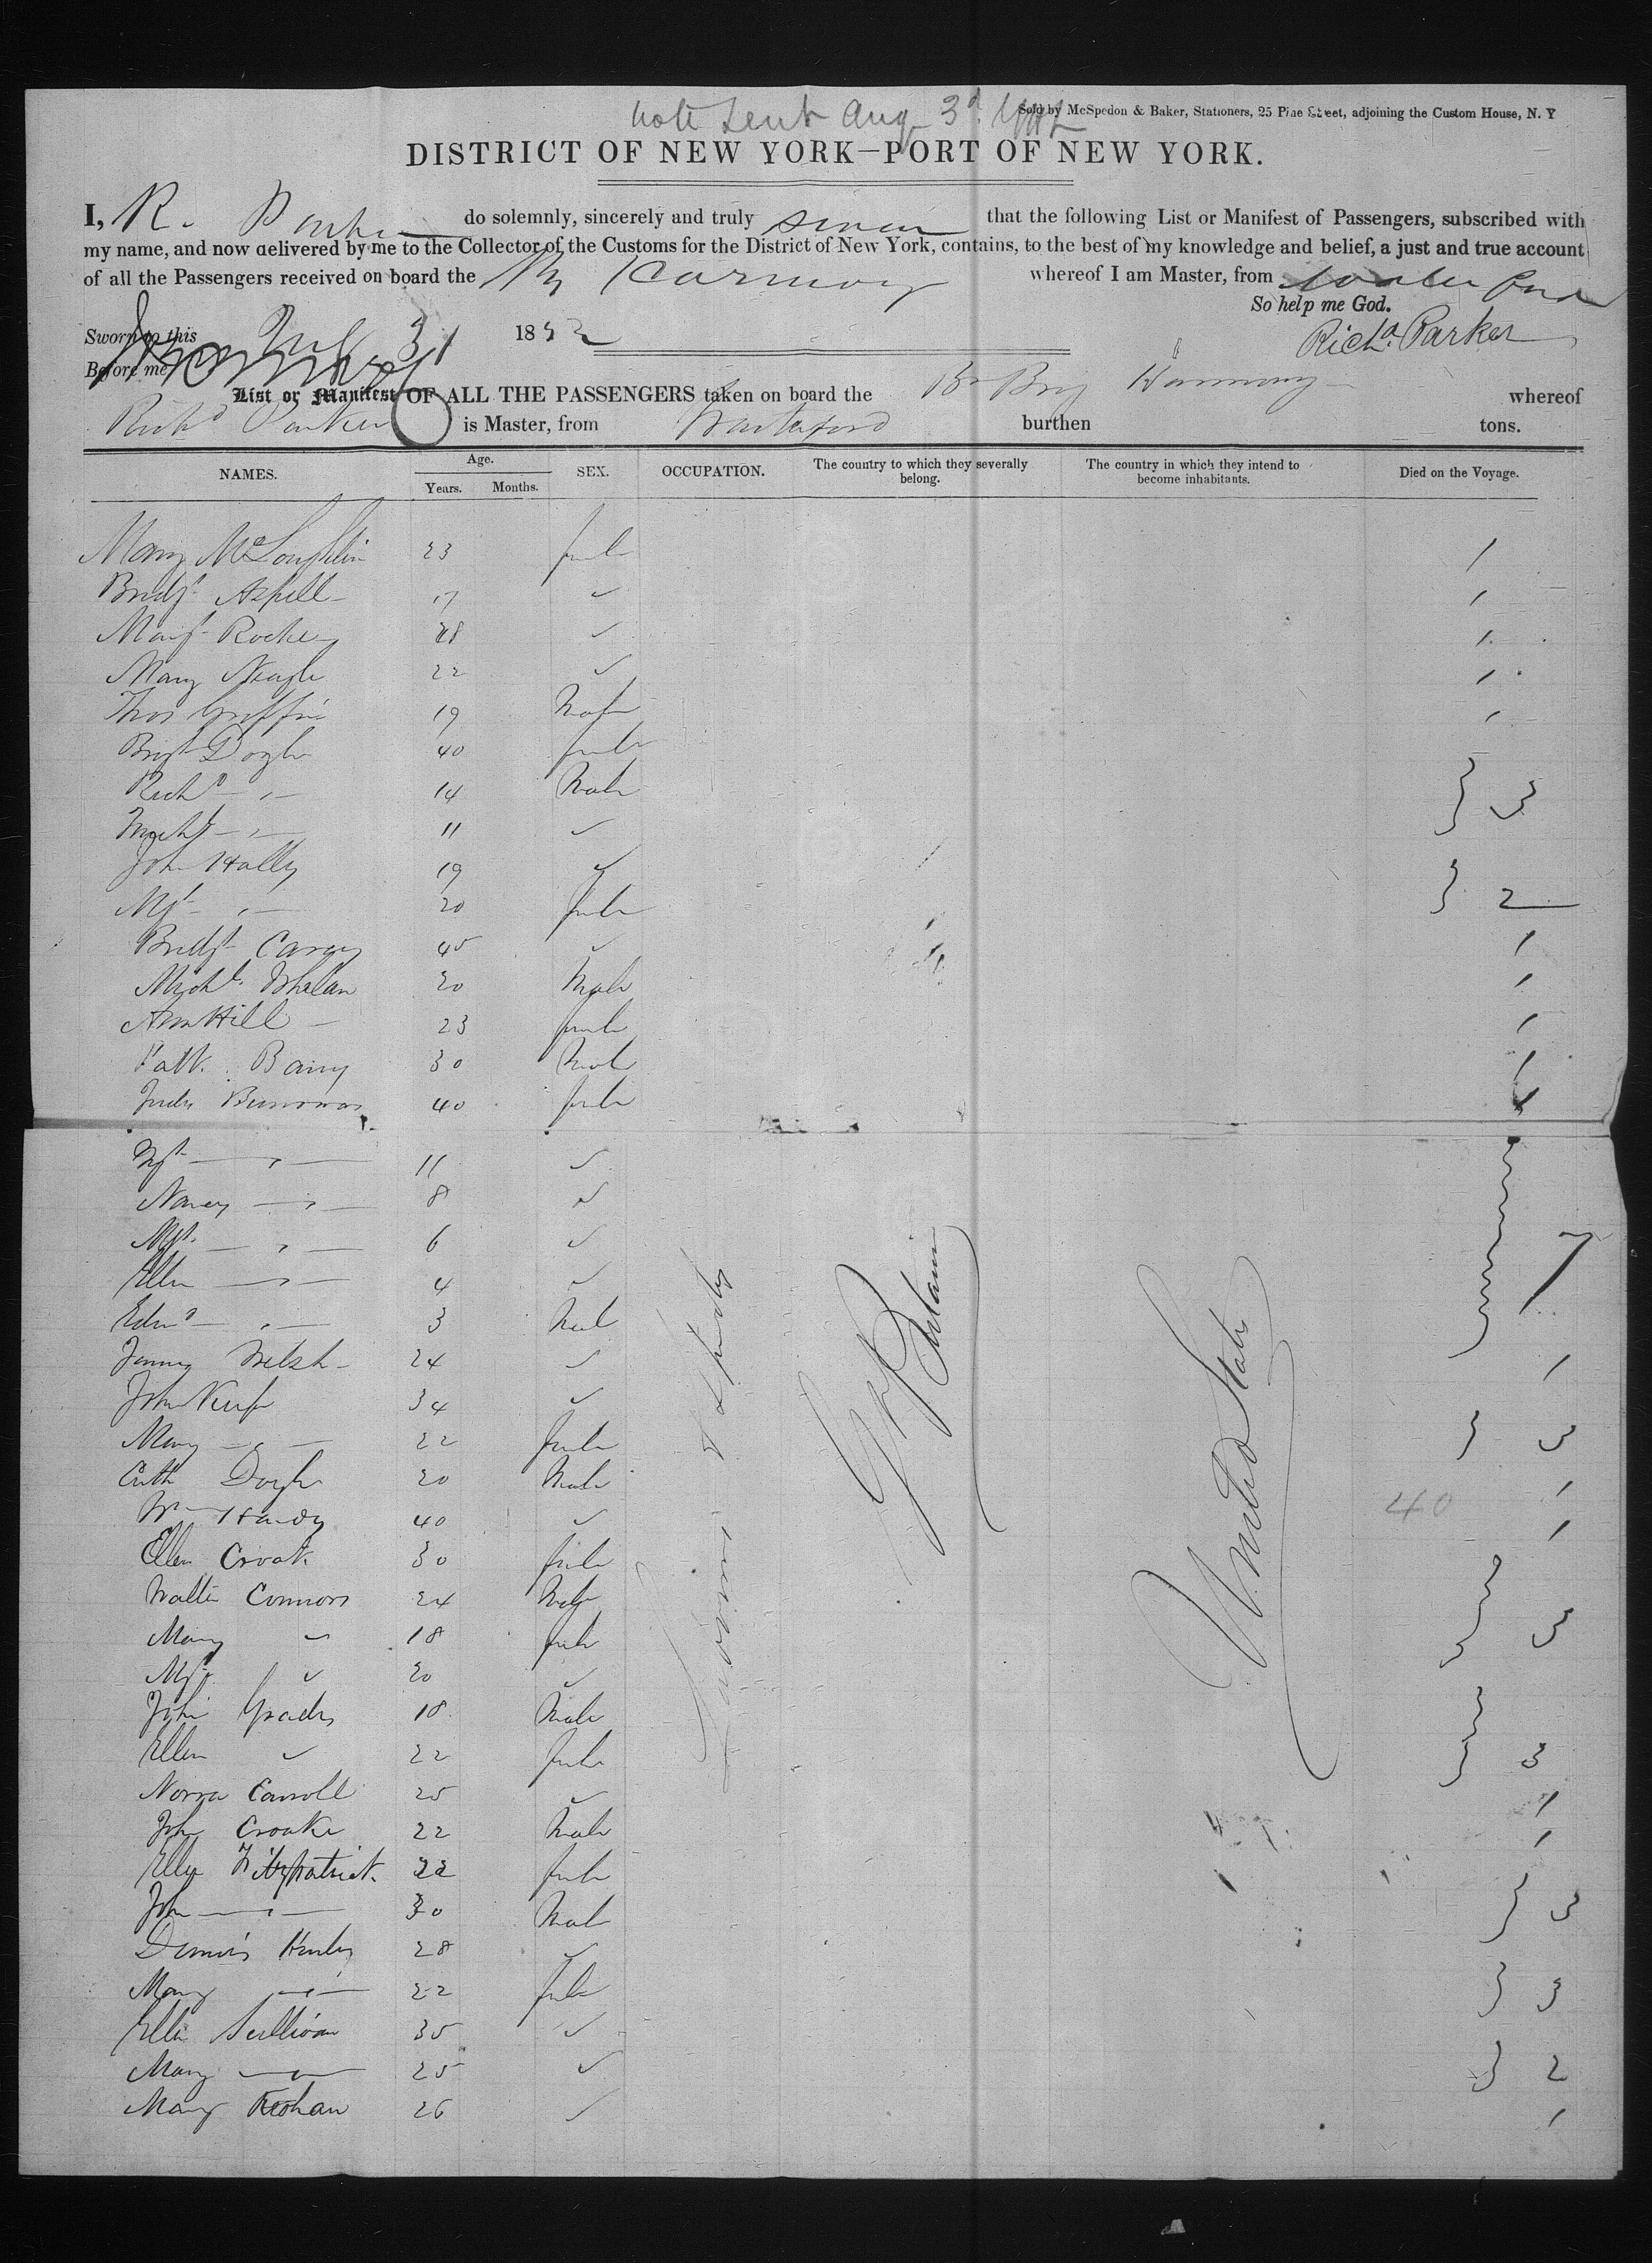 note sent Aug 3d
Sold by McSpedon & Baker, Stationers, 25 Pine Street, adjoining the Custom House, N. Y
DISTRICT OF NEW YORK—PORT OF NEW YORK.
I, R. Parker do solemnly, sincerely and truly swear that the following List or Manifest of Passengers, subscribed with
my name, and now delivered by me to the Collector of the Customs for the District of New York, contains, to the best of my knowledge and belief, a just and true account
of all the Passengers received on board the Harmony whereof I am Master, from Waterford
So help me God.
Sworn to this July 31 1852
Richd. Parker
Before me
List or Manifest OF ALL THE PASSENGERS taken on board the Br Brig Harmony whereof
Richd Parker is Master, from Waterford burthen tons.
NAMES. Age. Years. Months. SEX. OCCUPATION. The country to which they severally belong. The country in which they intend to become inhabitants. Died on the Voyage.
Mary McLoughlin 23 female 1
Bridgt Aspell 17 ✓ 1
Margt Roche 28 ✓ 1
Mary Neagle 22 ✓ 1
Thos Griffin 19 Male 1
Brigt Doyle 40 female
Richd — " — 14 Male } 3
— " — 11 ✓
John Hally 19 ✓
Mgt — " — 20 female } 2
Bridgt Carey 45 ✓ 1
Michl. Whelan 20 Male 1
Ann Hill 23 female 1
Patt. Barry 30 Male 1
Judy 40 female
Mgt — " — 11 ✓
Nancy — " — 8 ✓
Mgt. — " — 6 ✓ 7
Ellen — " — 4 ✓
Edmd — " — 3 Male
Welsh 24 ✓ 1
John 34 ✓
Mary — " — 22 female } 3
Doyle 20 Male 1
Wm Hardy 40 ✓ 40 1
Ellen Croak 30 female
Walter Connors 24 Male } 3
Mary " 18 female
Mgt " 20 ✓
John Grady 18 Male
Ellen " 22 female } 3
Norra Carroll 25 ✓ 1
John Croake 22 Male 1
Ellen Fitzpatrick 22 female
John — " — 30 Male } 3
Dennis Hurley 28 ✓
Mary — " — 22 female } 3
Ellen Sullivan 35 ✓
Mary — " — 25 ✓ } 2
Mary Keohan 26 ✓ 1
Farmers & Spinsters
Gt Britain
United States